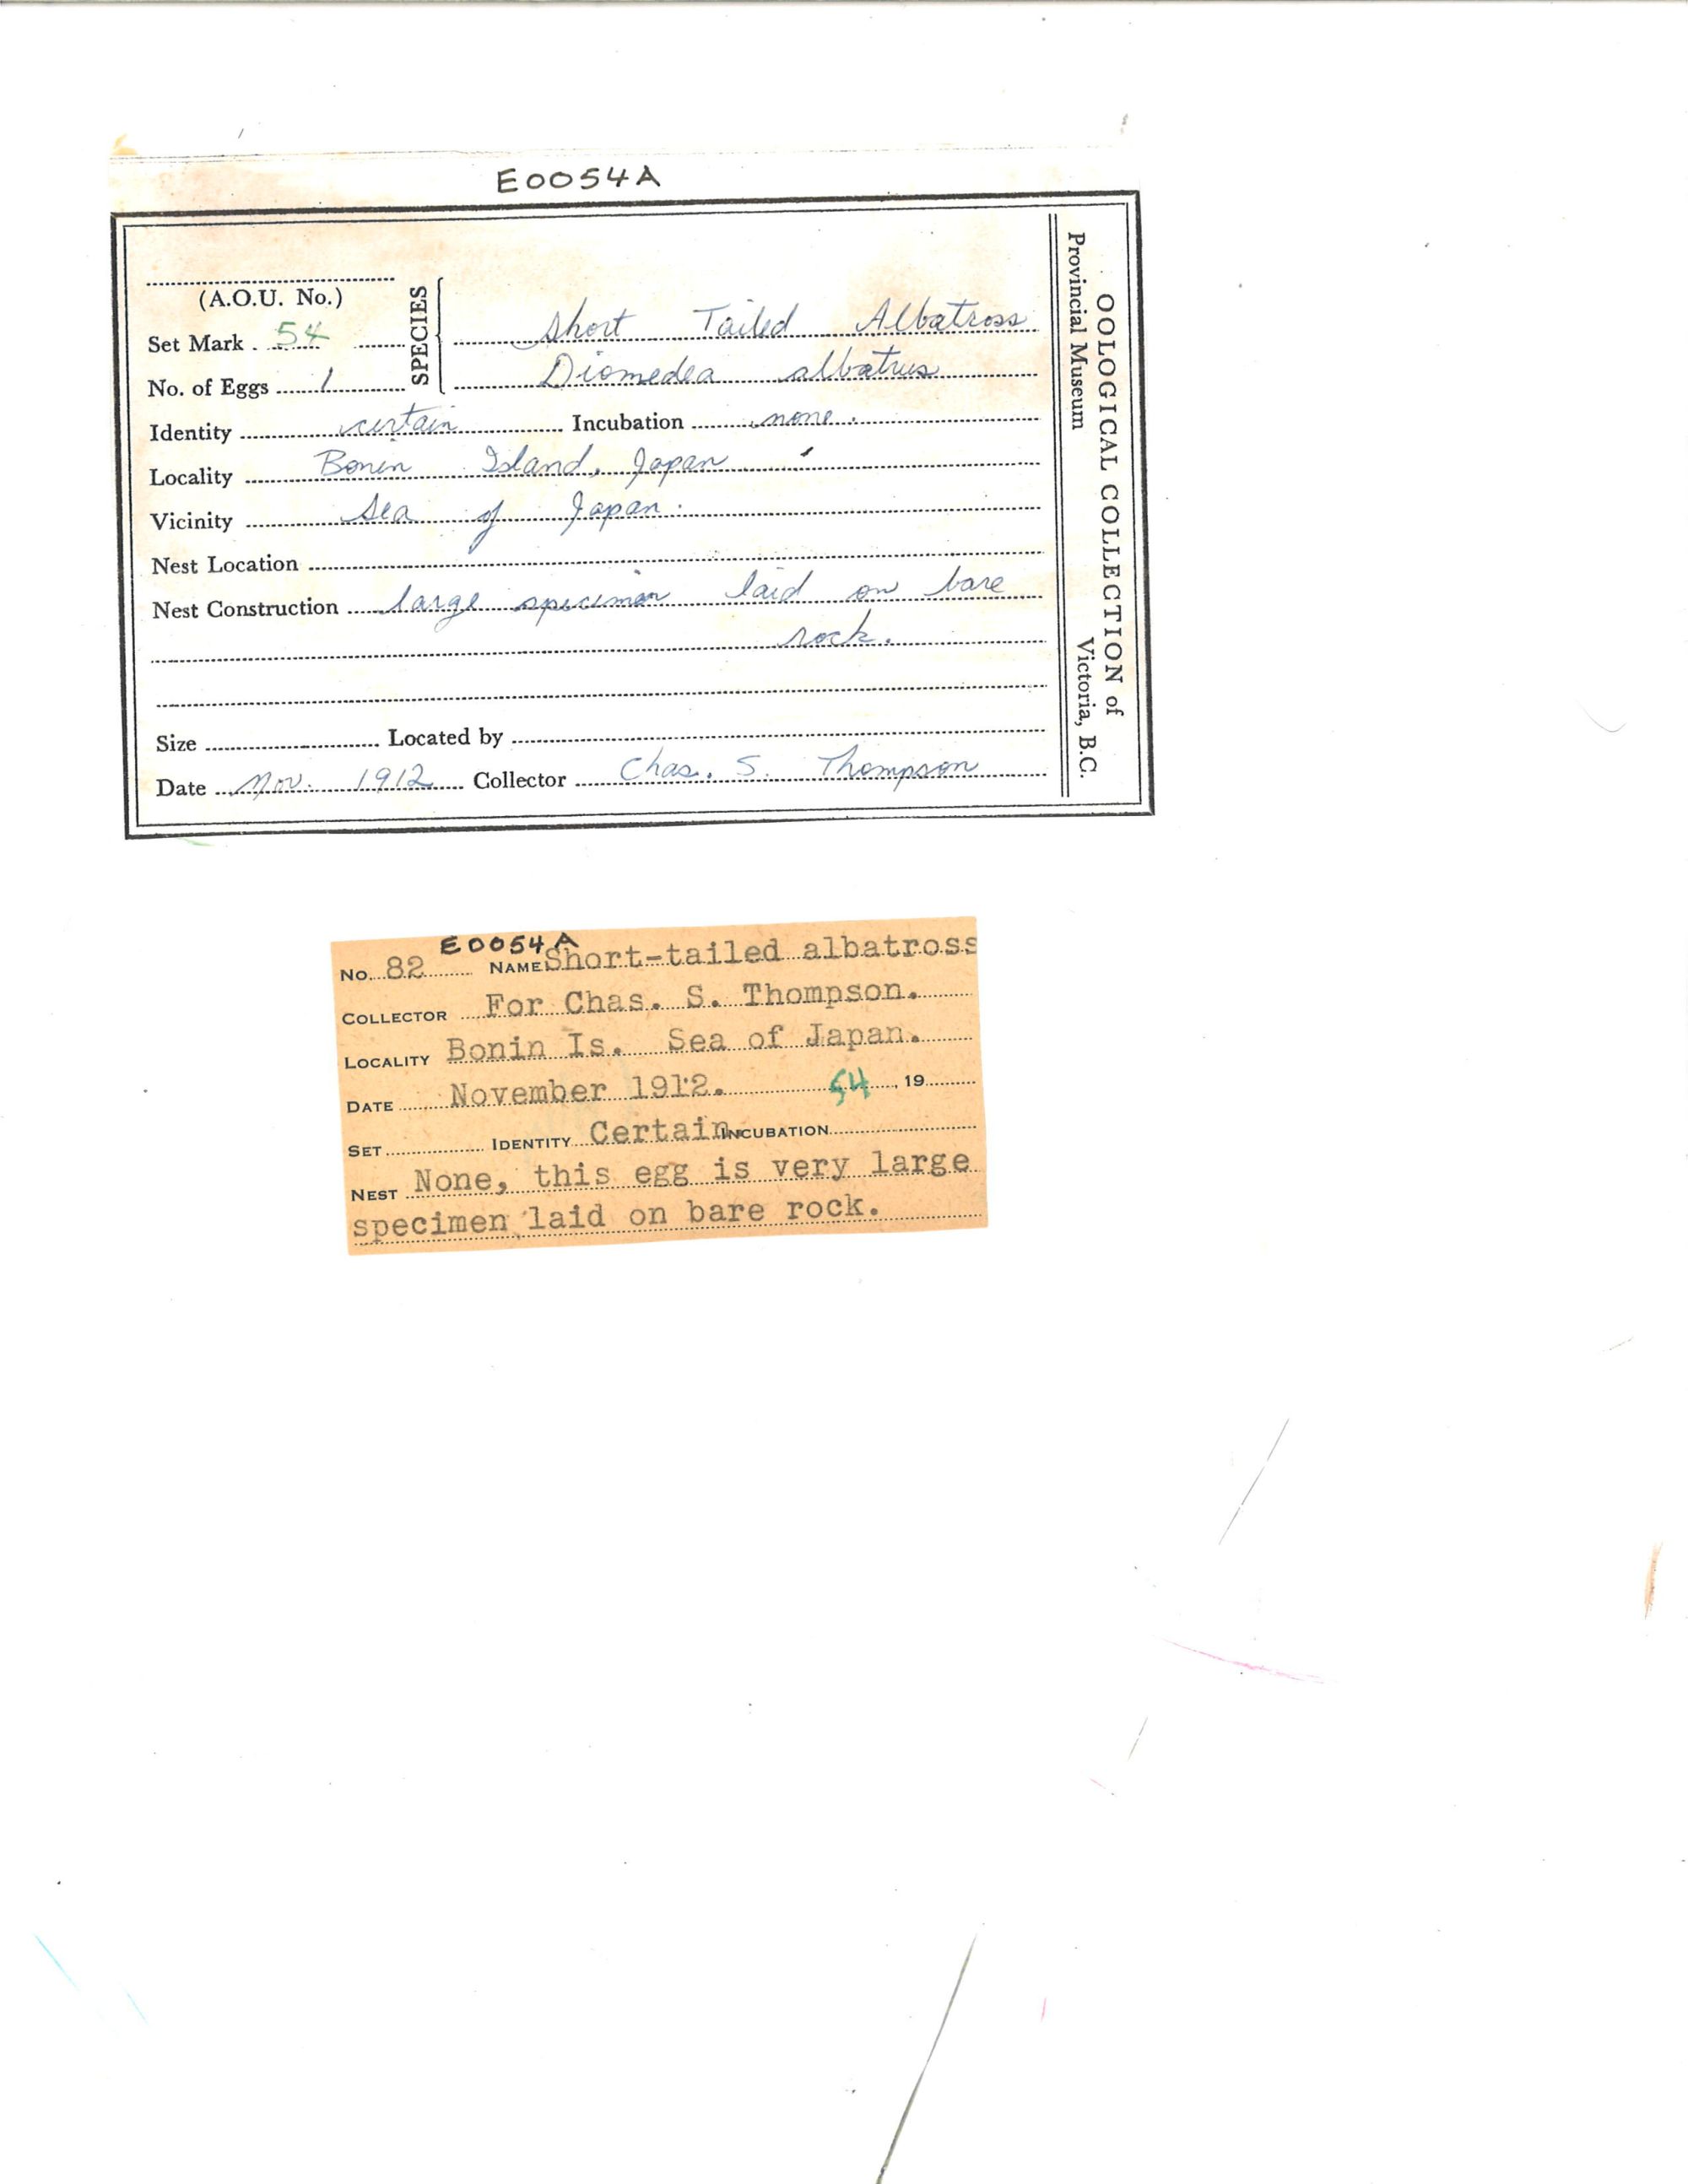 E0054A
(A.O.U. No.)
Set Mark 54
No. of Eggs 1
SPECIES
Short Tailed Albatross
Diomedea albatrus
Identity certain Incubation none.
Locality Bonin Island, Japan
Vicinity Sea of Japan.
Nest Location
Nest Construction large specimen laid on bare
rock.
Size Located by
Date Nov. 1912 Collector Chas. S. Thompson
OOLOGICAL COLLECTION of
Provincial Museum Victoria, B.C.
E0054A
No. 82 NAME Short-tailed albatross
COLLECTOR For Chas. S. Thompson.
LOCALITY Bonin Is. Sea of Japan.
DATE November 1912. 54, 19
SET IDENTITY Certain INCUBATION
NEST None, this egg is very large
specimen laid on bare rock.